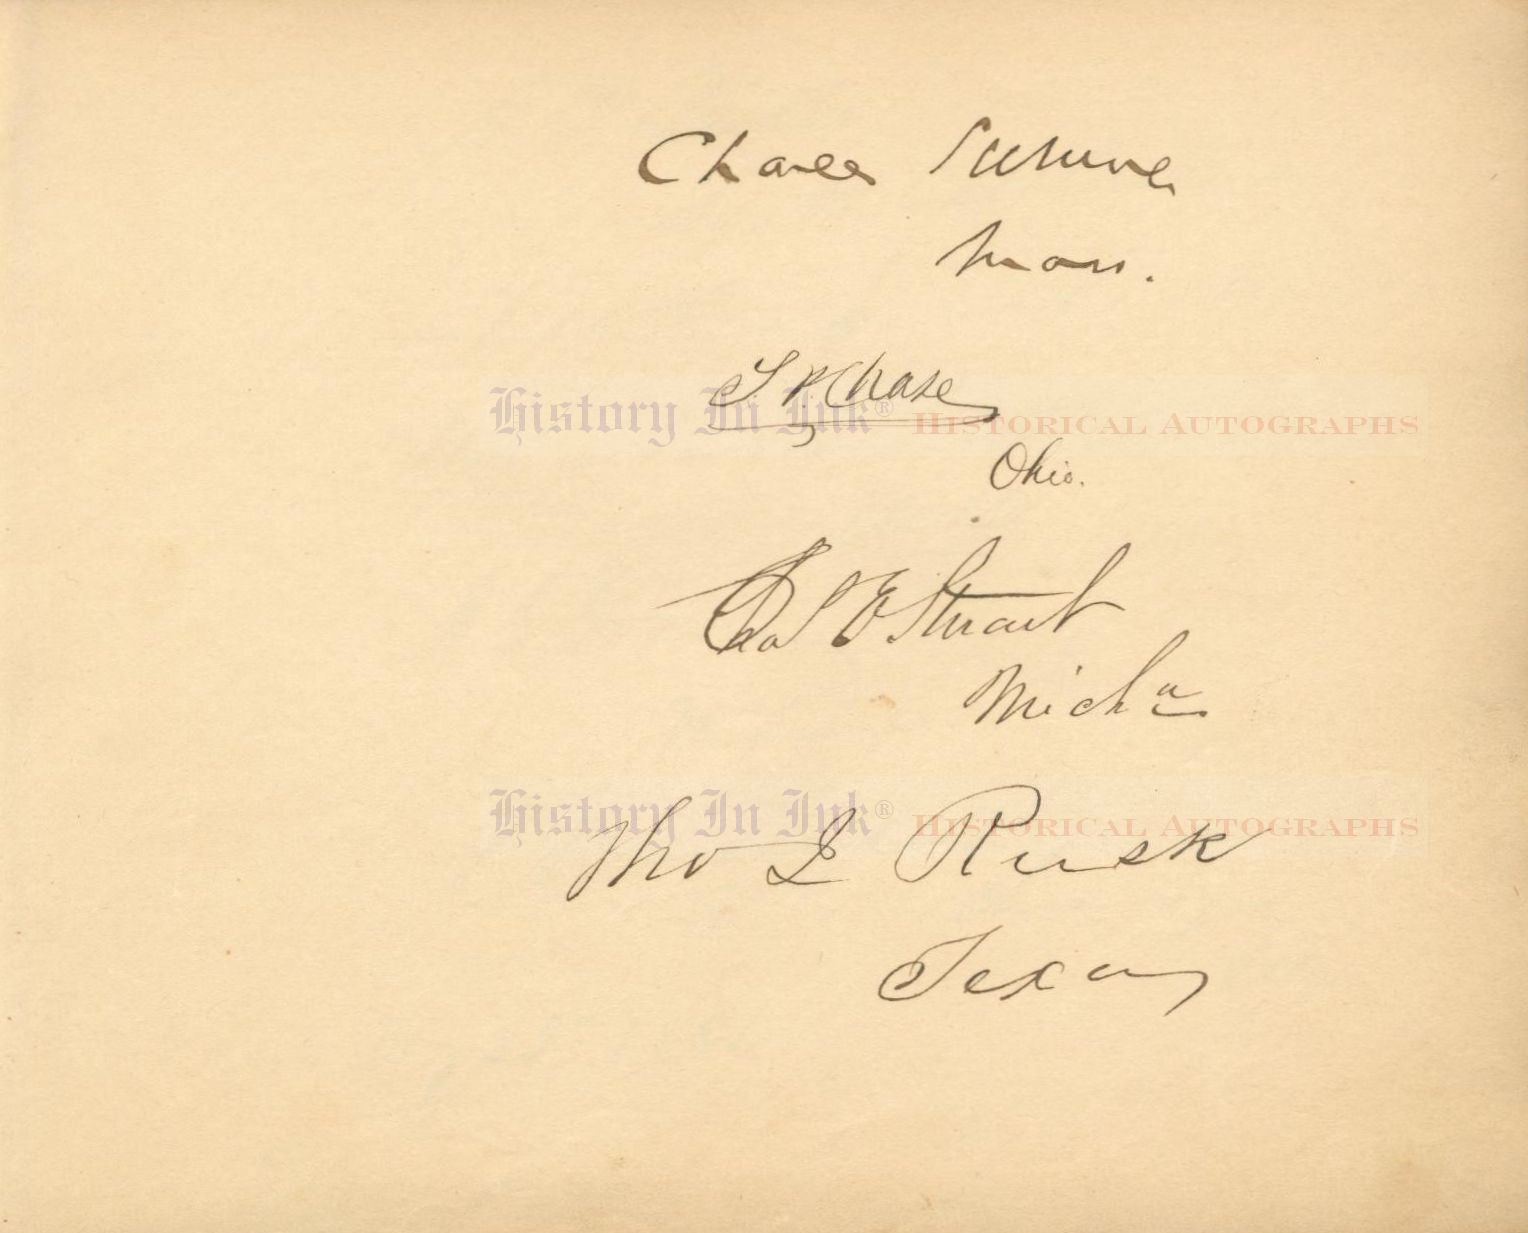 Charles Sumner
Mass.
S P Chase
History In Ink® Historical Autographs
Ohio.
Chas E Stuart
Mich n
History In Ink® Historical Autographs
Tho J Rusk
Texas